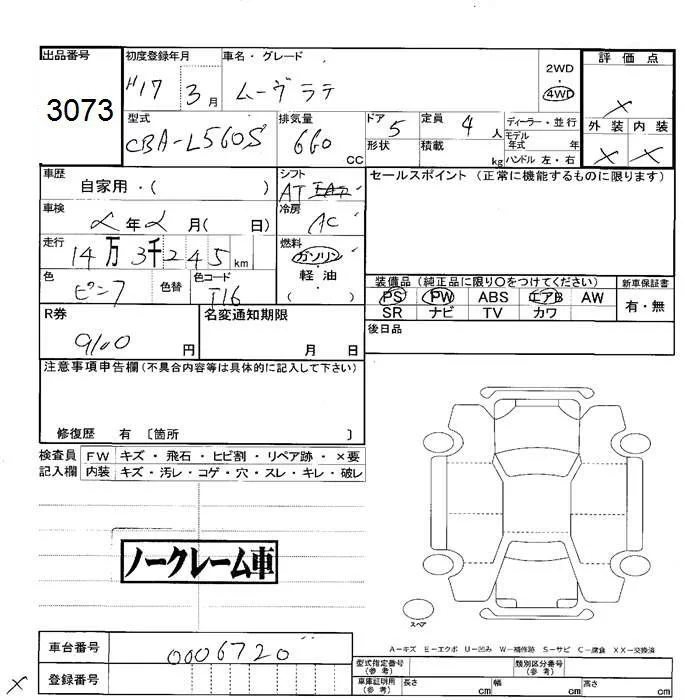 出品番号
3073
初度登録年月
H17 3月
車名・グレード
ムーヴラテ
2WD
・
4WD
評価点
×
外装 内装
× ×
型式
CBA-L560S
排気量
660 CC
ドア
5
形状
定員
4 人
積載
kg
ディーラー・並行
モデル
年式 年
ハンドル 左・右
車歴
自家用・( )
シフト
AT
車検
年 月( 日)
冷房
AC
走行
14万3千245km
燃料
ガソリン
・
軽油
( )
色
ピンク
色替
色コード
T16
セールスポイント (正常に機能するものに限ります)
装備品 (純正品に限り○をつけてください)
PS PW ABS エアB AW
SR ナビ TV カワ
新車保証書
有・無
後日品
R券
9100 円
名変通知期限
月 日
注意事項申告欄(不具合内容等は具体的に記入して下さい)
修復歴 有 〔箇所 〕
検査員
記入欄
FW キズ・飛石・ヒビ割・リペア跡・×要
内装 キズ・汚レ・コゲ・穴・スレ・キレ・破レ
ノークレーム車
スペア
A-キズ E-エクボ U-凹み W-補修跡 S-サビ C-腐食 XX-交換済
車台番号
0006720
登録番号
×
型式指定番号
(参考)
類別区分番号
(参考)
車庫証明用
(参考)
長さ cm
幅 cm
高さ cm